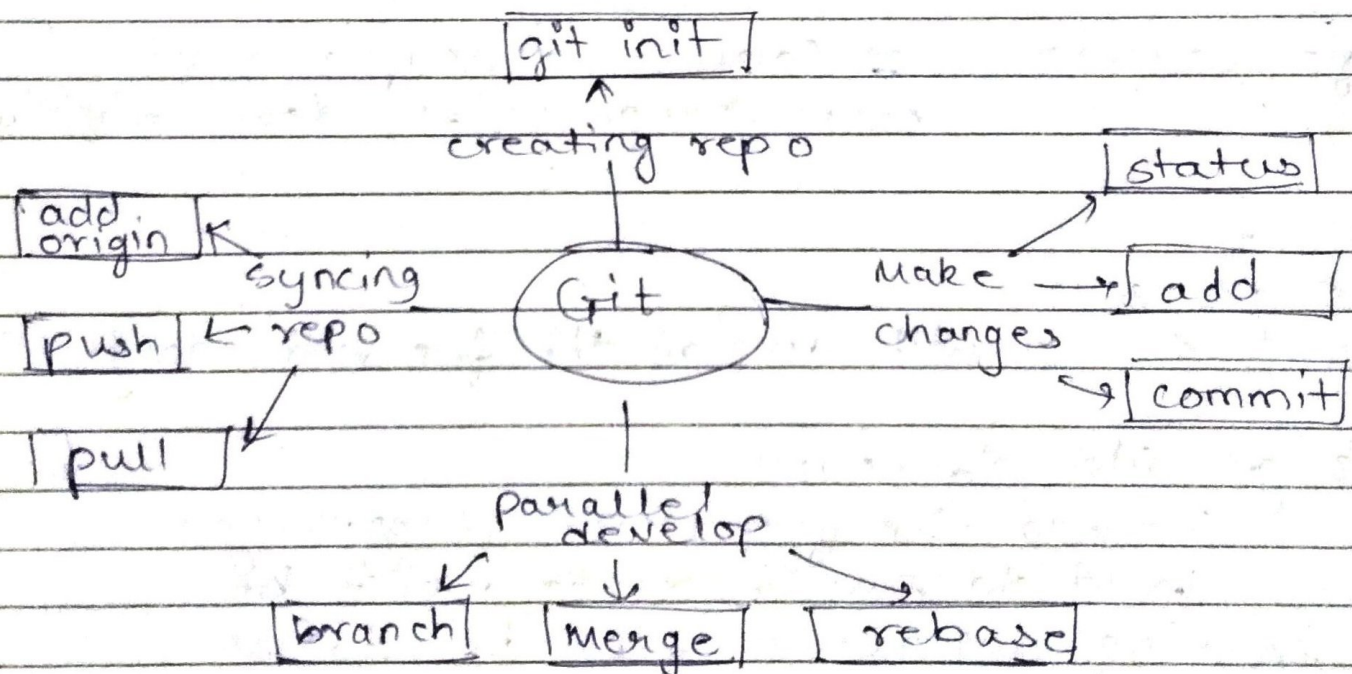 git init
creating repo
status
add
origin
syncing
repo
Git
Make
changes
add
push
commit
pull
parallel
develop
branch
merge
rebase